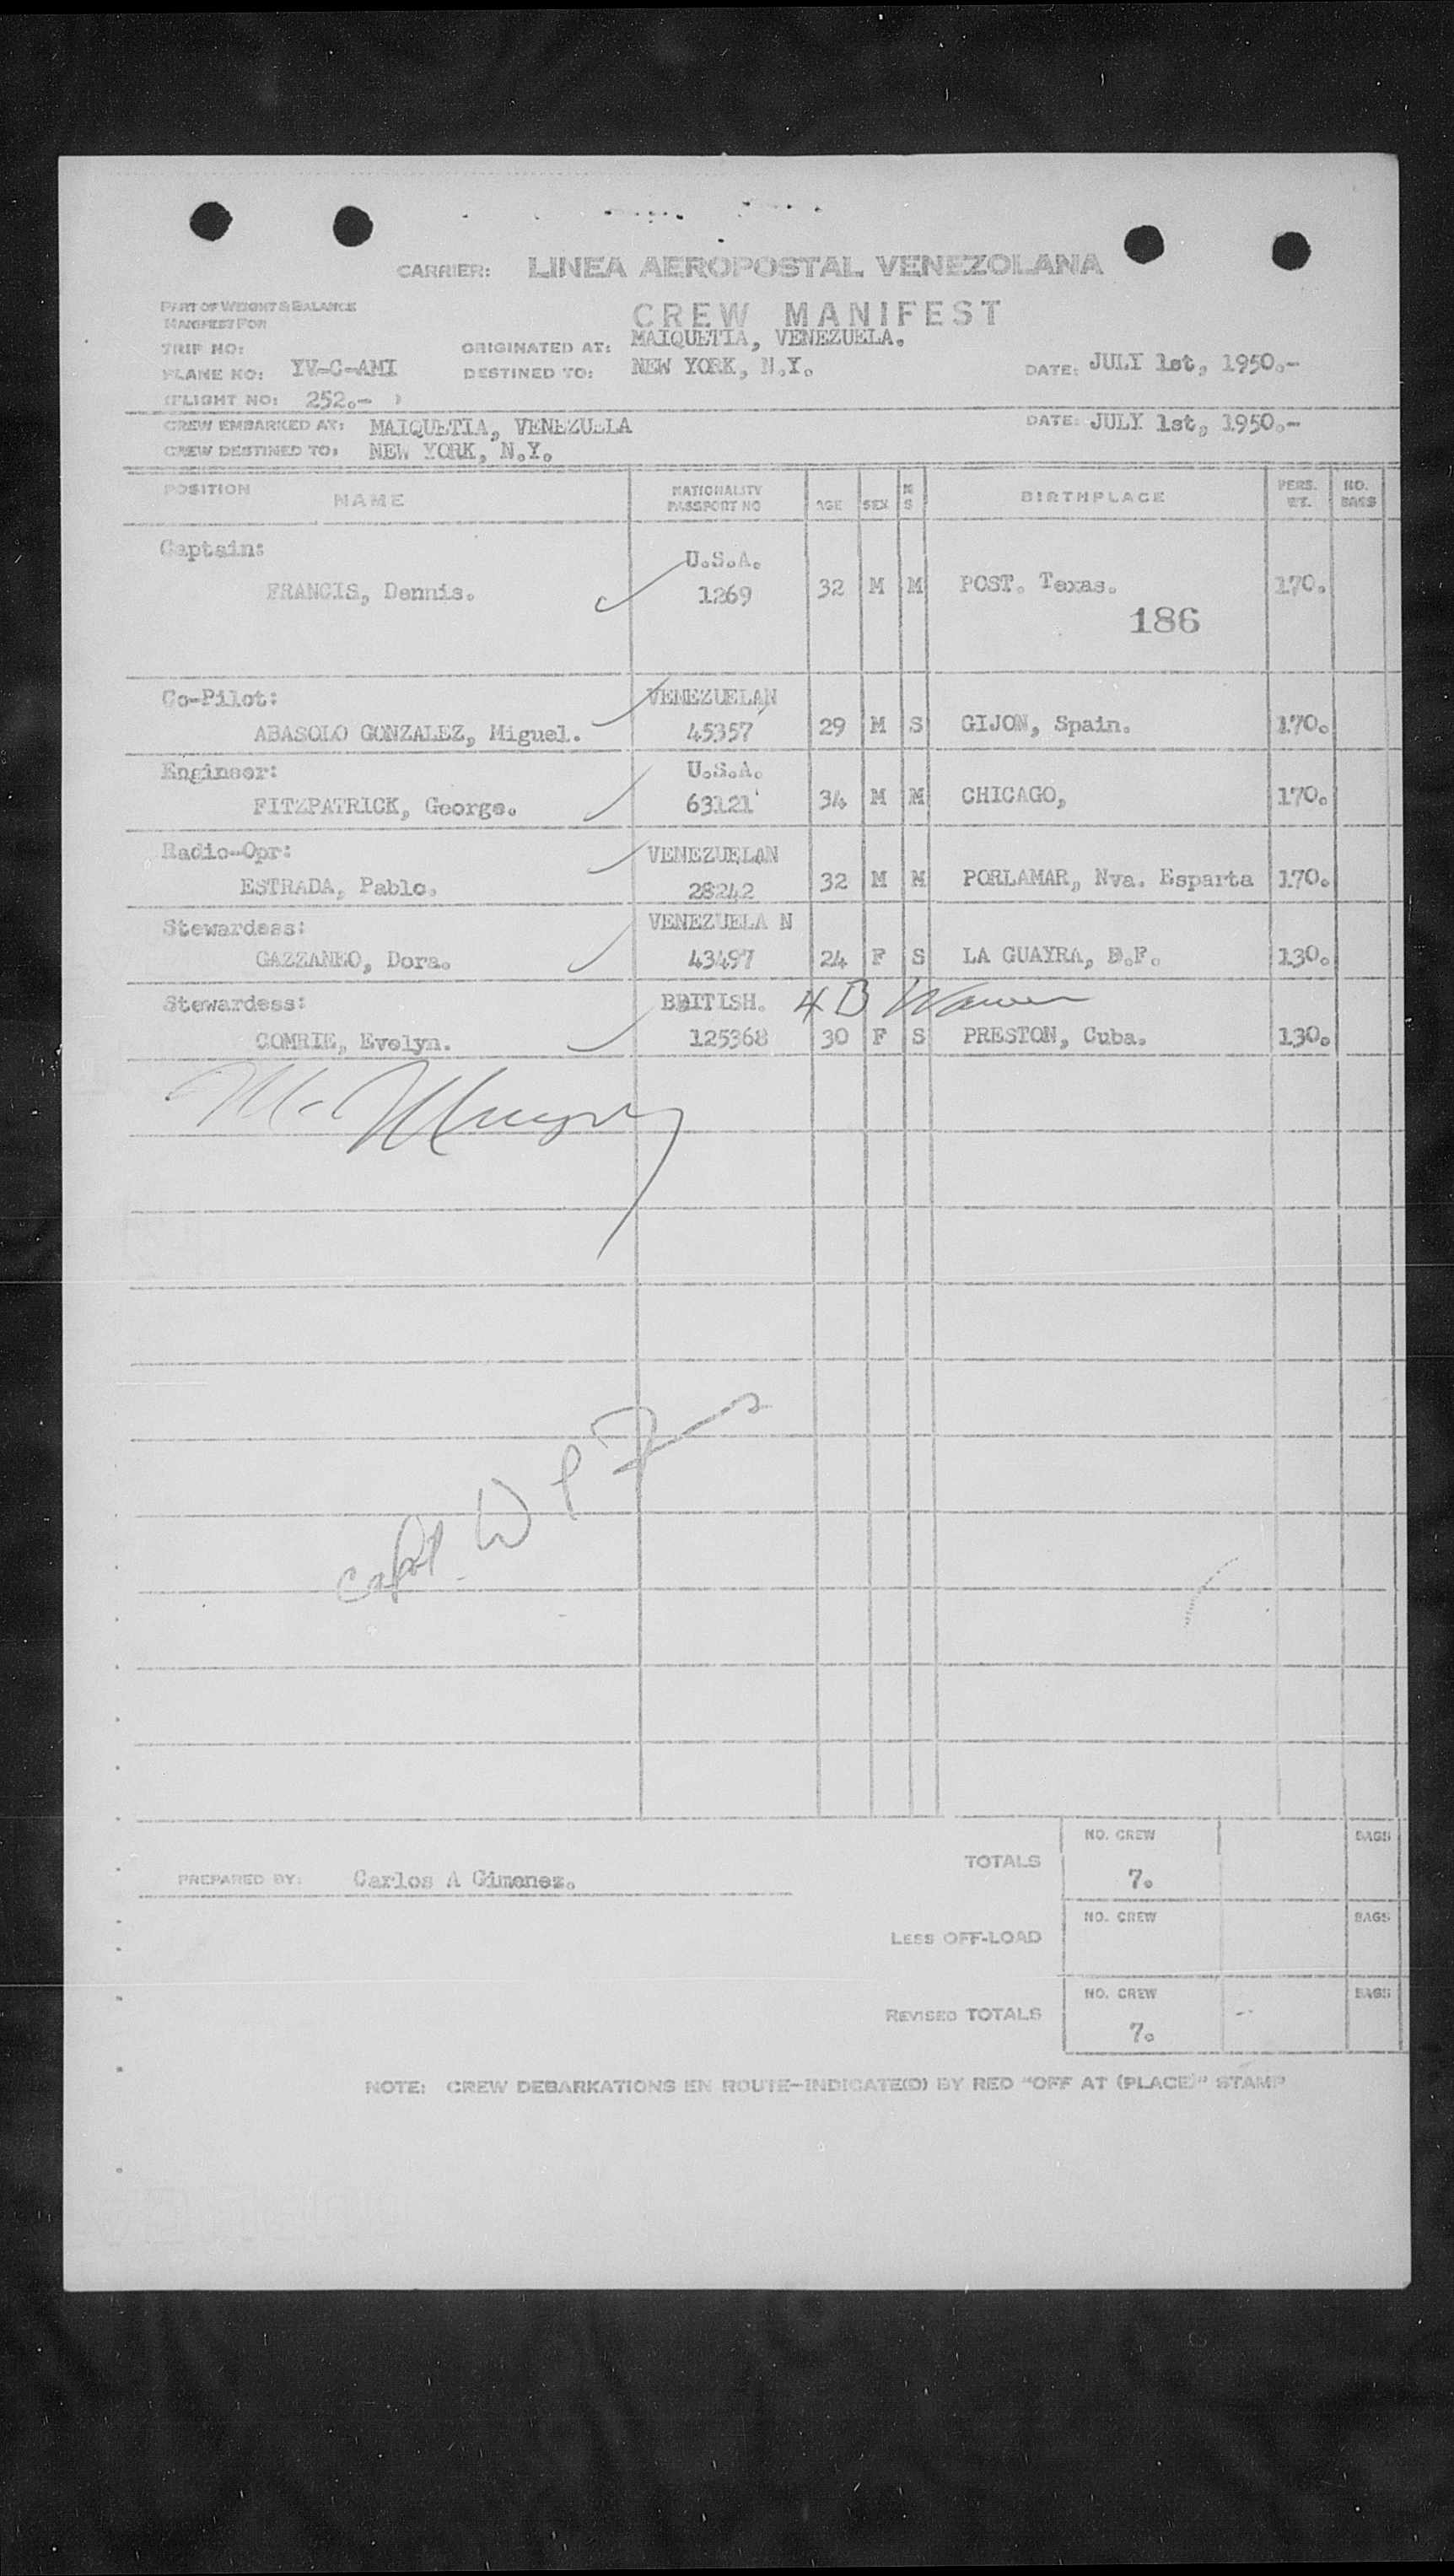 CARRIER: LINEA AEROPOSTAL VENEZOLANA
PART OF WEIGHT & BALANCE
MANIFEST FOR
CREW MANIFEST
TRIP NO:
ORIGINATED AT: MAIQUETIA, VENEZUELA.
PLANE NO: YV-C-AMI
DESTINED TO: NEW YORK, N.Y.
DATE: JULY 1st, 1950.-
(FLIGHT NO: 252.- )
CREW EMBARKED AT: MAIQUETIA, VENEZUELA
DATE: JULY 1st, 1950.-
CREW DESTINED TO: NEW YORK, N.Y.
POSITION NAME NATIONALITY PASSPORT NO AGE SEX M S BIRTHPLACE PERS. WT. NO. BAGS
Captain: U.S.A.
FRANCIS, Dennis. 1269 32 M M POST. Texas. 170.
186
Co-Pilot: VENEZUELAN
ABASOLO GONZALEZ, Miguel. 45357 29 M S GIJON, Spain. 170.
Engineer: U.S.A.
FITZPATRICK, George. 63121 34 M M CHICAGO, 170.
Radio-Opr: VENEZUELAN
ESTRADA, Pablo. 28242 32 M M PORLAMAR, Nva. Esparta 170.
Stewardess: VENEZUELA N
GAZZANEO, Dora. 43497 24 F S LA GUAYRA, D.F. 130.
Stewardess: BRITISH. 4 B
COMRIE, Evelyn. 125368 30 F S PRESTON, Cuba. 130.
Capt. W P
NO. CREW BAGS
TOTALS 7.
PREPARED BY: Carlos A Gimenez.
NO. CREW BAGS
LESS OFF-LOAD
NO. CREW BAGS
REVISED TOTALS 7.
NOTE: CREW DEBARKATIONS EN ROUTE-INDICATE(D) BY RED "OFF AT (PLACE)" STAMP